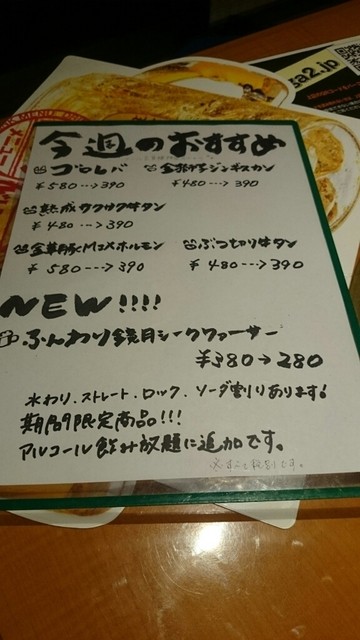 za2.jp
今週のおすすめ
ゴロレバ
¥580→390
金华豚ジンギスカン
¥480→390
熟成サクサク牛タン
¥480→390
金華豚Mixホルモン
¥580→390
ぶつ切り牛タン
¥480→390
NEW!!!!
ふんわり鏡月シークヮーサー
¥380→280
水わり.ストレート.ロック.ソーダ割りあります!
期間限定商品!!!
アルコール飲み放題に追加です。
※すべて税別です。